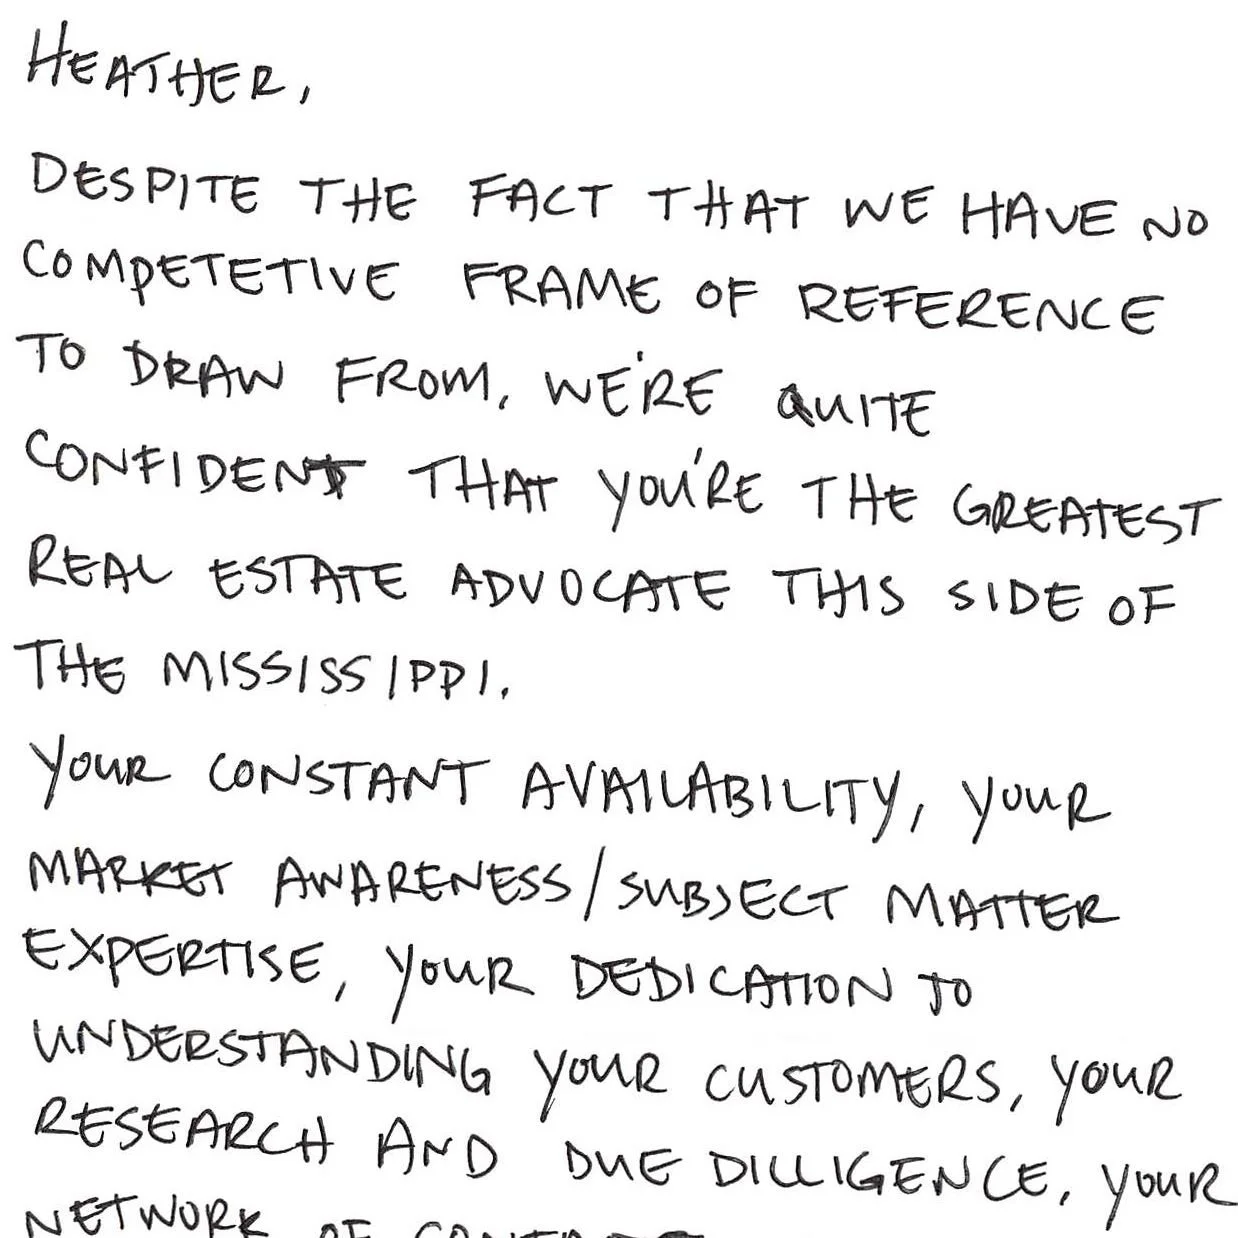 HEATHER,
DESPITE THE FACT THAT WE HAVE NO
COMPETETIVE FRAME OF REFERENCE
TO DRAW FROM, WE'RE QUITE
CONFIDENT THAT YOU'RE THE GREATEST
REAL ESTATE ADVOCATE THIS SIDE OF
THE MISSISSIPPI.
YOUR CONSTANT AVAILABILITY, YOUR
MARKET AWARENESS/SUBJECT MATTER
EXPERTISE, YOUR DEDICATION TO
UNDERSTANDING YOUR CUSTOMERS, YOUR
RESEARCH AND DUE DILLIGENCE, YOUR
NETWORK OF